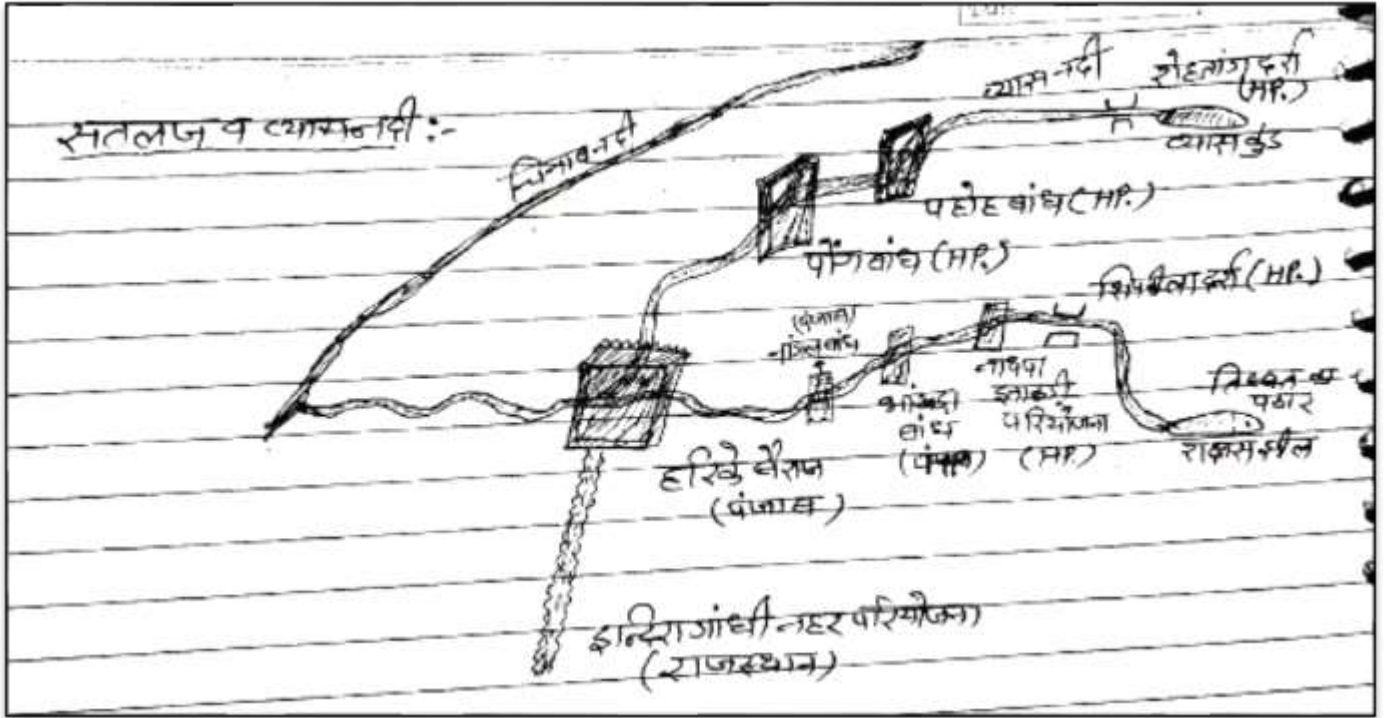 सतलज व व्यास नदी :-
चिनाब नदी
व्यास नदी
रोहतांग दर्रा
(HP.)
व्यास कुंड
पहोह बांध (HP.)
पोंग बांध (HP.)
शिपकीला दर्रा (HP.)
(पंजाब)
नांगल बांध
भांखड़ा
बांध
(पंजाब)
नाथपा
झाकड़ी
परियोजना
(HP.)
तिब्बत का
पठार
राक्षस झील
हरिके बैराज
(पंजाब)
इन्दिरा गांधी नहर परियोजना
(राजस्थान)